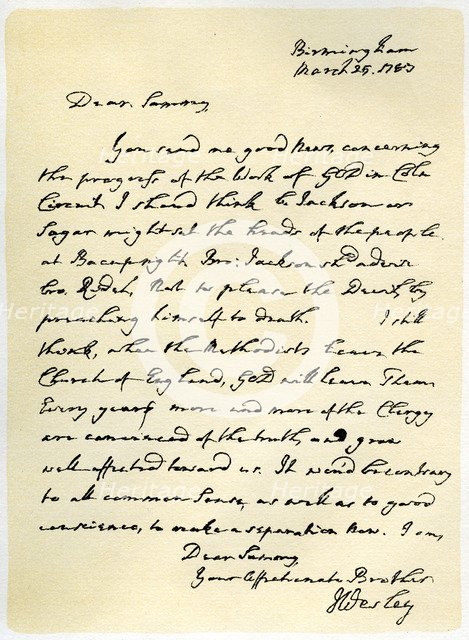 Birmingham
March 25. 1787
Dear Sammy,
You send me good News, concerning
the progress of the Work of GOD in Coln
Circuit. I should think Br Jackson or
Sagar might set the heads of the people
at Bacup right. Bro: Jackson shd advise
bro. Ridel, Not to please the Devil, by
preaching himself to death. I still
think, when the Methodists leave the
Church of England, GOD will leave Them.
Every year more and more of the Clergy
are convinced of the truth, and grow
well-affected toward us. It wou'd be contrary
to all common Sense, as well as to good
conscience, to make a separation Now. I am,
Dear Sammy,
Your Affectionate Brother
JWesley